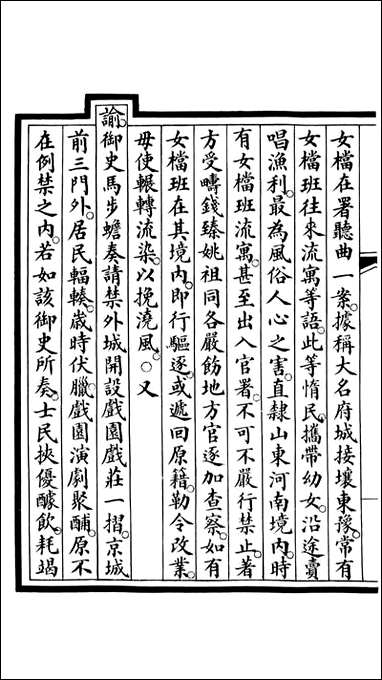 女檔在署聽曲一案。據稱大名府城接壤東豫。常有
女檔班往來流寓等語。此等惰民。攜帶幼女。沿途賣
唱漁利。最為風俗人心之害。直隸山東河南境內。時
有女檔班流寓。甚至出入官署。不可不嚴行禁止。著
方受疇錢臻姚祖同各嚴飭地方官逐加查察。如有
女檔班在其境內。即行驅逐。或遞回原籍。勒令改業。
毋使輾轉流染。以挽澆風。○又
諭。御史馬步蟾奏請禁外城開設戲園戲莊一摺。京城
前三門外。居民輻輳。歲時伏臘。戲園演劇聚酺。原不
在例禁之內。若如該御史所奏。士民挾優釀飲。耗竭